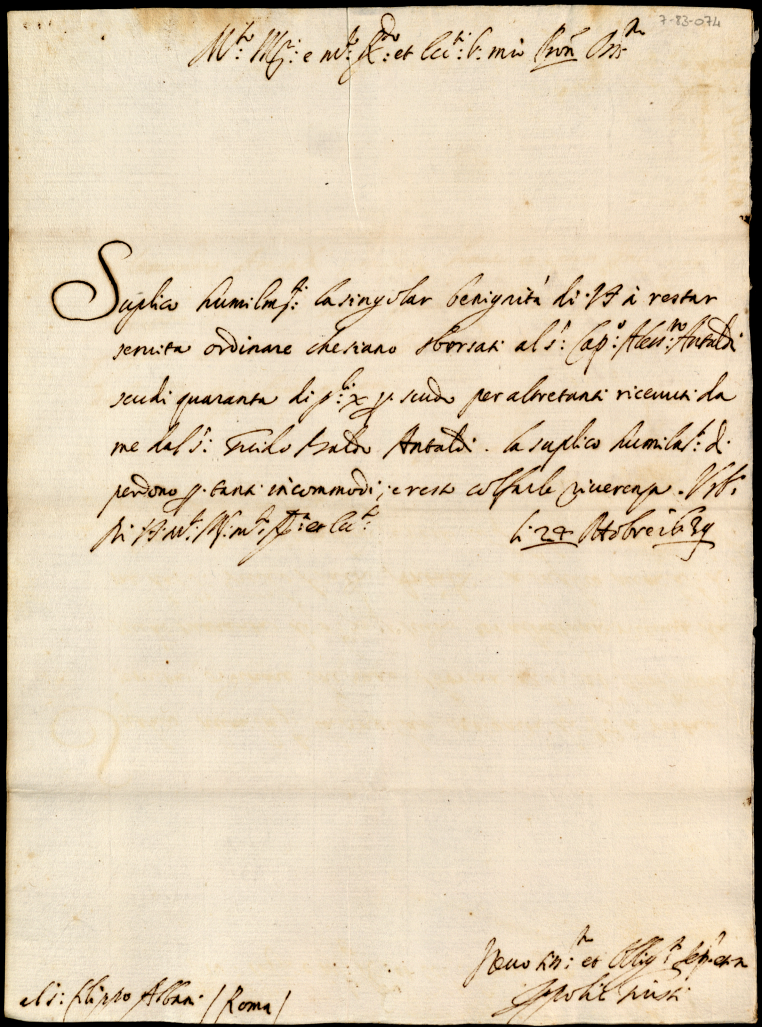 7-83-074
M.to Ill.
et Ecc.mo S. mio Pron
Suplico humilm.te la singolar benignità di V S à restar
seruita ordinare che siano sborsati al s.r Cap.o Aless.ro Antaldi
scudi quaranta di p.li x p. scudo per altretanti riceuuti da
me dal s.r Ubaldo Antaldi. la suplico humilm.te di
perdono p. tanti incommodi, e resto col farle riuerenza. Urb.
Di V.S. M.to et Ecc.ma
li 24 Ottobre 1639
Deuotiss.mo et Oblig.mo
al s.r filippo Albani / Roma /